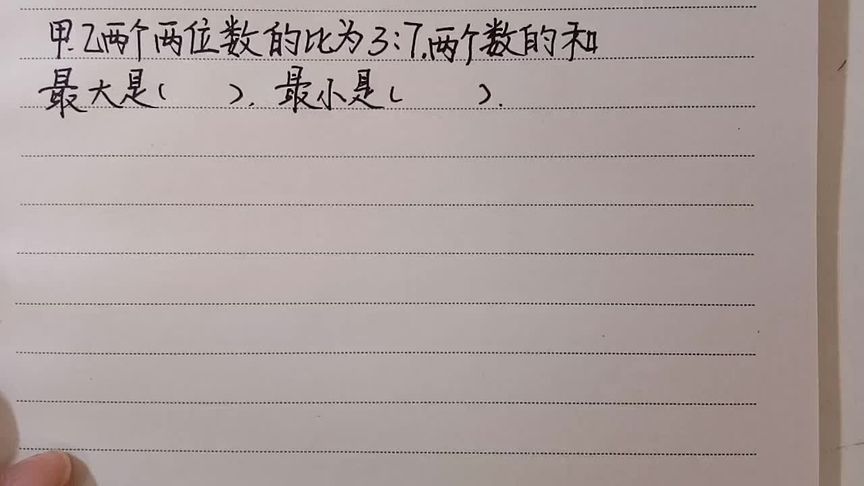 甲.乙两个两位数的比为3:7.两个数的和
最大是(    ). 最小是(    ).